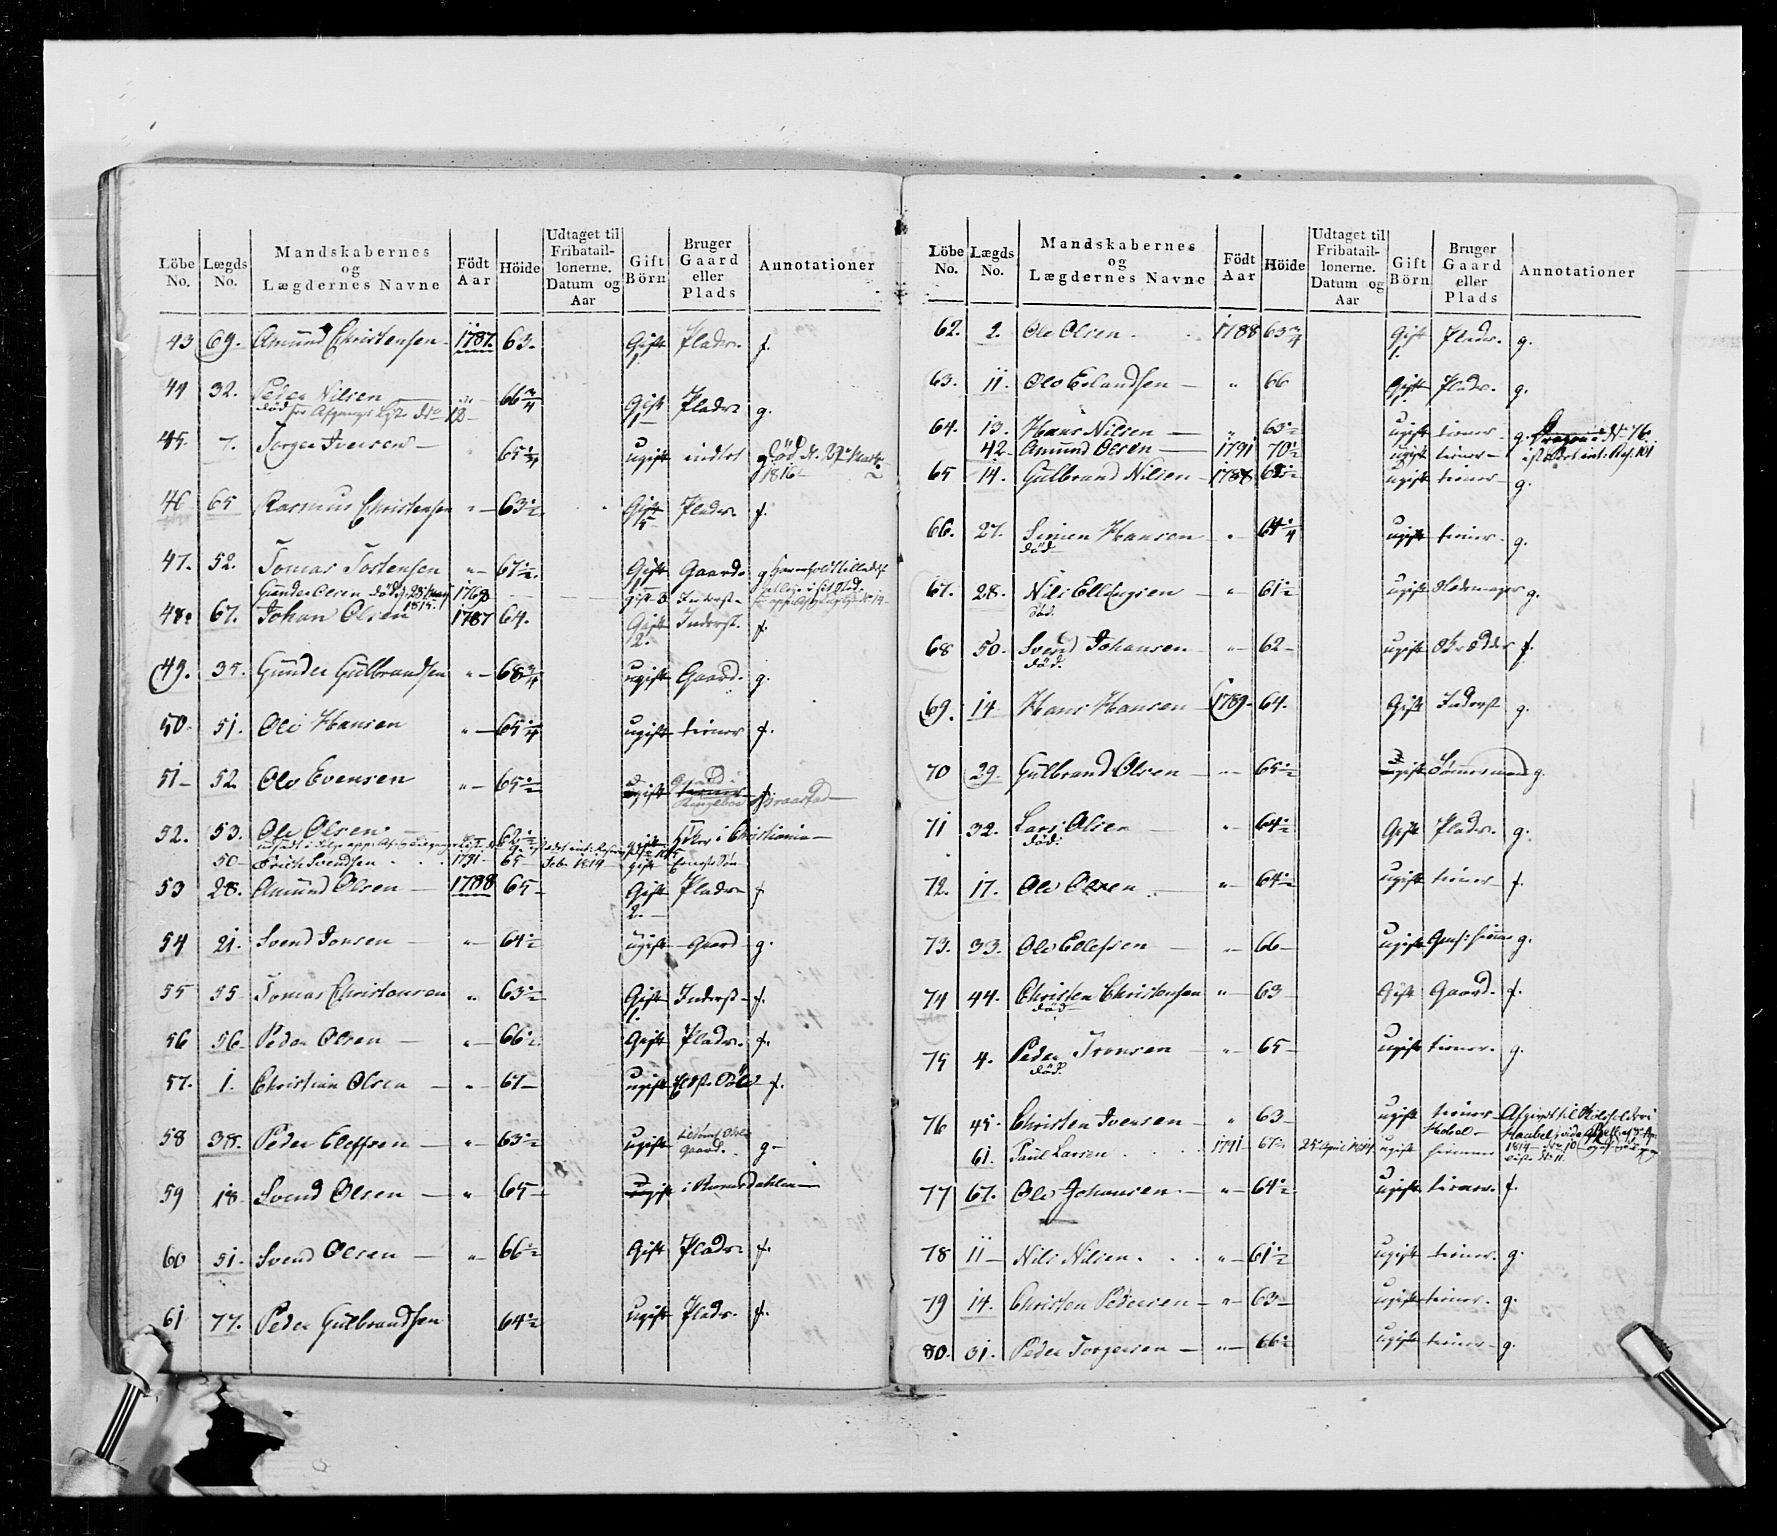 Löbe No. Lægds No. Mandskabernes og Lægdernes Navne Födt Aar Höide Udtaget til Fribatail-lonerne. Datum og Aar Gift Börn Bruger Gaard eller Plads Annotationer
43 69. Amund Christensen 1787. 63. Gift 1. Plads. f.
44 32. Peder Nilsen " 66 3/4 Gift 1 Plads g.
død
45. 7. Torger Iversen " ugift g. Død d.
1816
46 65 Rasmus Christensen " 63 1/2 Gift 5 Plads. f.
47. 52. Tomas Tostensen " 67 1/2. Gift Gaard. g
Gunder Olsen død 1768 gift Inderst
1815.
48. 67. Johan Olsen 1787 64. Gift 2. Inderst. f.
49. 35. Gunder Gulbrandsen " 68 3/4 ugift Gaard. g.
50. 51. Ole Hansen " 65 1/4 ugift tiener f.
51 52. Ole Evensen " 65 1/2 ugift tiener f.
52. 53. Ole Olsen 62 1/2 i Christiania
50 Erich Svendsen 1791 65 Feb. 1814 gift
53 28. Amund Olsen 1788 65 Gift 2. Plads f
54 21. Svend Jonsen " 64 1/2 ugift Gaard g.
55 55 Tomas Christensen " 63 1/2 Gift 1. Inderst f.
56 56 Peder Olsen " 66 1/2 Gift Plads. f.
57. 1. Christian Olsen " 67 ugift f.
58 38. Peder Eleffsen " 63 1/2 ugift Gaard. g
59 18 Svend Olsen " 65 ugift i Romsdahlen
60 51. Svend Olsen " 66 1/2 Gift Plads f.
61 77. Peder Gulbrandsen 64 1/2 ugift Plads. f.
Löbe No. Lægds No. Mandskabernes og Lægdernes Navne Födt Aar Höide Udtaget til Fribatail-lonerne. Datum og Aar Gift Börn Bruger Gaard eller Plads Annotationer
62. 2. Ole Olsen. 1788 63 3/4 Gift 1. Plads. g.
63. 11. Ole Erlandsen " 66 Gift 1. Plads. g.
64. 13. Hans Nilsen " 63 1/2 ugift tiener g. No 76.
42 Amund Olsen 1791 70 1/2 ugift tiener
65 14. Gulbrand Nilsen 1788 62 1/2 ugift tiener g.
66. 27. Simen Hansen " 64 1/4 ugift tiener g.
død
67. 28. Nils Ellingsen " 61 1/2 ugift g.
død.
68 50. Svend Johansen " 62 ugift f.
død.
69. 14 Hans Hansen 1789. 64. Gift Inderst g.
70 29. Gulbrand Olsen " 65 1/2 ugift Tømmermand g.
71 32. Lars Olsen " 64 1/2 Gift Plads. g.
død.
72. 17. Ole Olsen " 64 1/2 ugift tiener f.
73. 33. Ole Ellefsen " 66 ugift g.
74 44. Christen Christensen " 63 Gift Gaard. f.
død
75 4. Peder Tronsen " 65 ugift tiener. g.
død.
76 45. Christen Iversen " 63 ugift tiener Afgivet til
61. Paul Larsen 1791 67 25 April 1814 ugift
77 67. Ole Johansen. " 64 1/2 ugift tiener. f.
78 11 Nils Nilsen. " 61 1/2 ugift tiener. g.
79 14. Christen Pedersen " 63 ugift tiener. g.
80. 31. Peder Torgersen " 66 1/2 ugift tiener g.